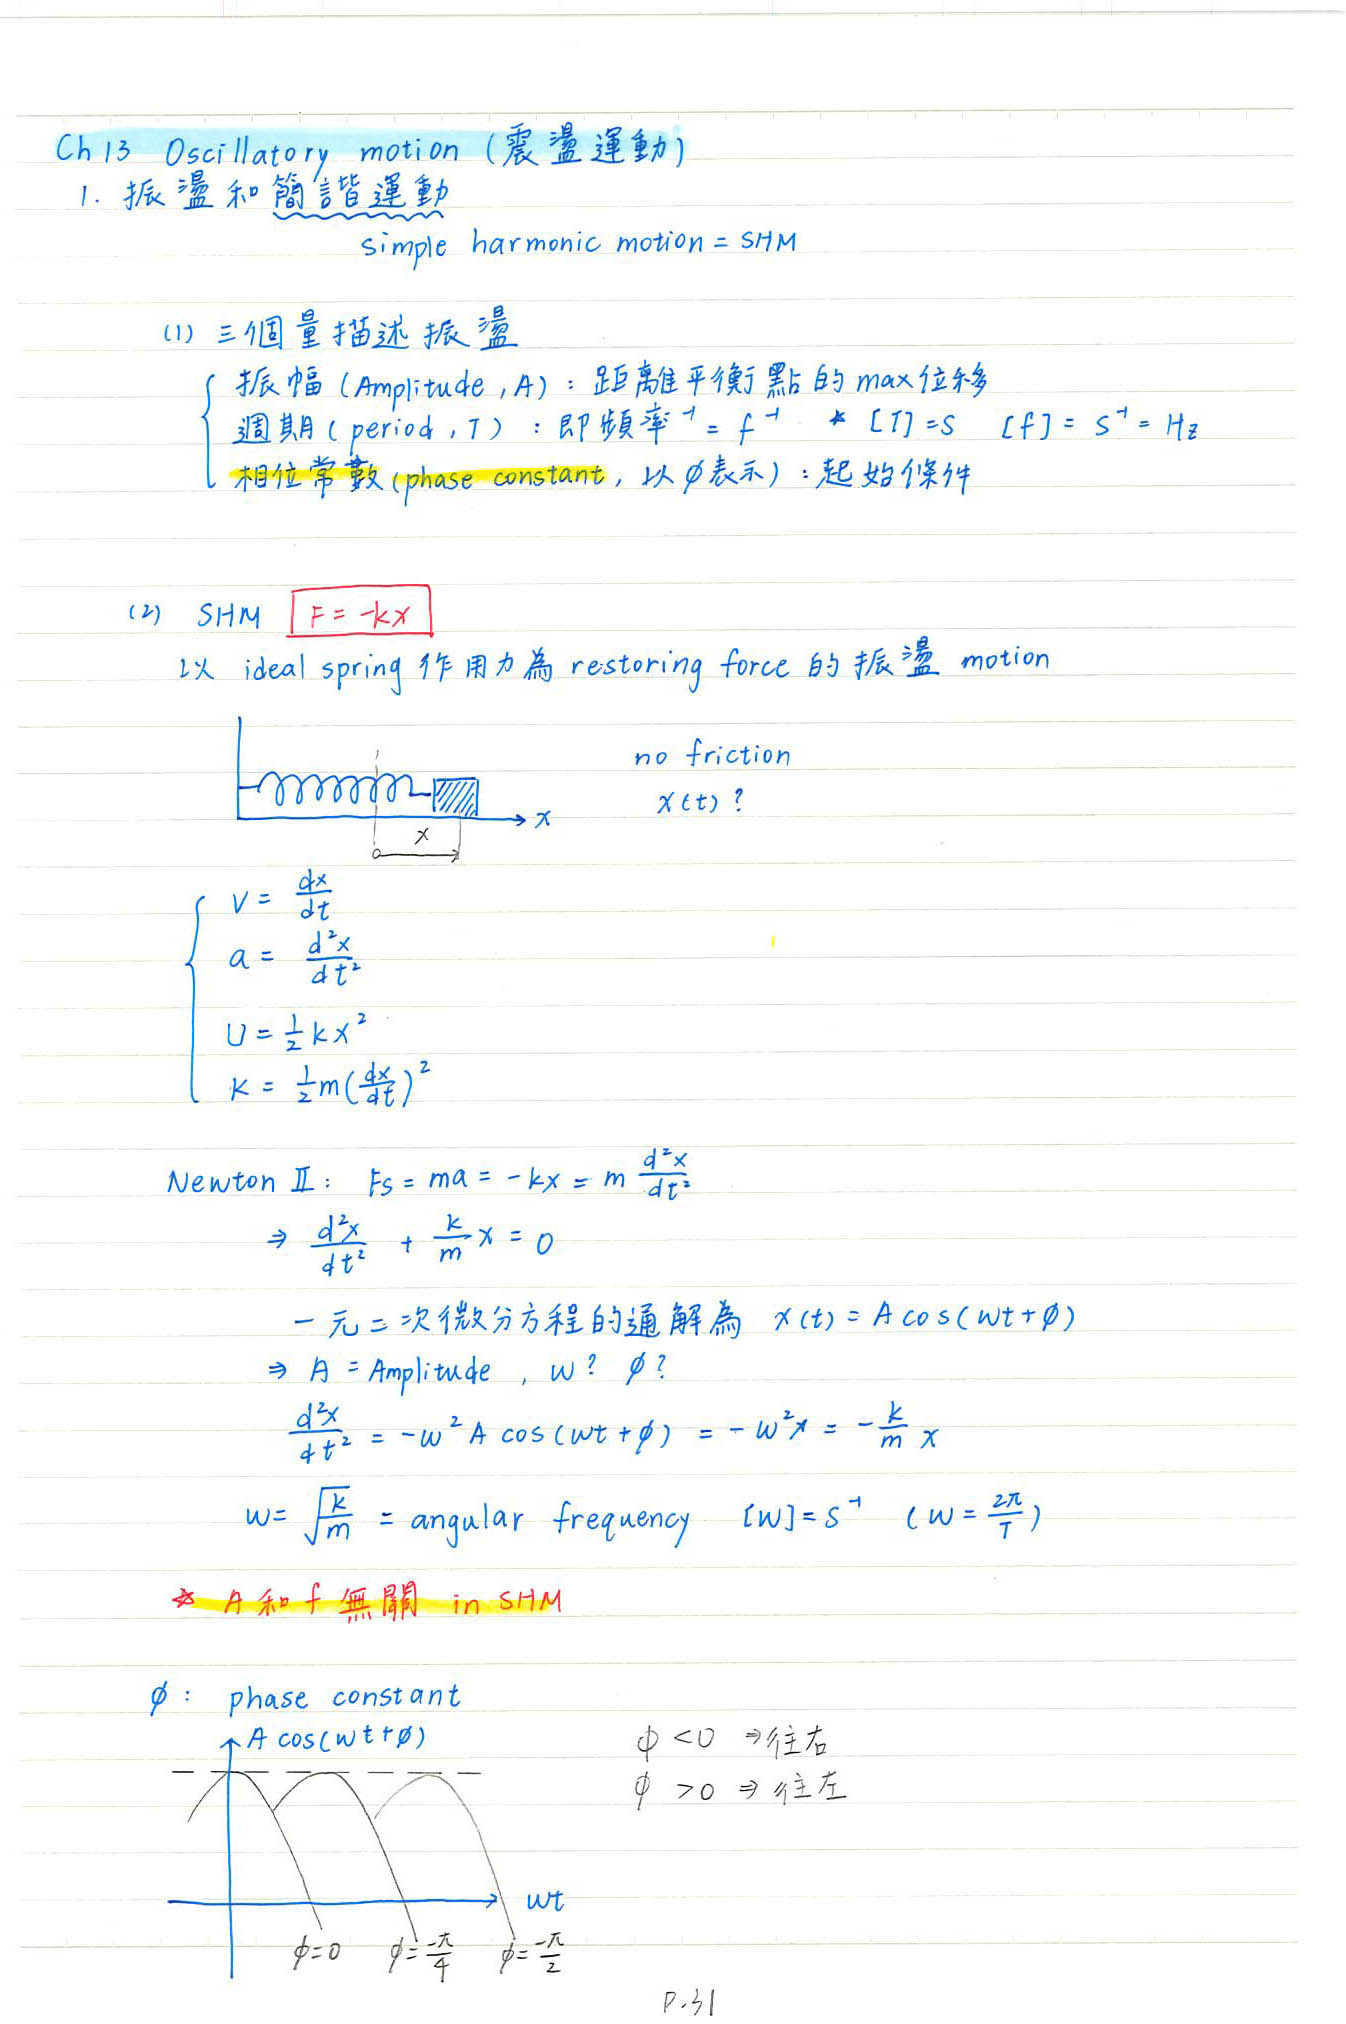 Ch 13 Oscillatory motion (震盪運動)
1. 振盪和簡諧運動
simple harmonic motion = SHM
(1) 三個量描述振盪
振幅 (Amplitude, A) : 距離平衡點的 max 位移
週期 (period, T) : 即頻率⁻¹ = f⁻¹ * [T] = s [f] = s⁻¹ = Hz
相位常數 (phase constant, 以 ϕ 表示) : 起始條件
(2) SHM F = -kx
以 ideal spring 作用力為 restoring force 的振盪 motion
no friction
x(t) ?
x
x
v = dx/dt
a = d²x/dt²
U = 1/2 kx²
K = 1/2 m(dx/dt)²
Newton II : Fs = ma = -kx = m d²x/dt²
⇒ d²x/dt² + k/m x = 0
一元二次微分方程的通解為 x(t) = A cos(wt + ϕ)
⇒ A = Amplitude , w? ϕ?
d²x/dt² = -w² A cos(wt + ϕ) = -w²x = -k/m x
w = √(k/m) = angular frequency [w] = s⁻¹ (w = 2π/T)
☆ A 和 f 無關 in SHM
ϕ : phase constant
A cos(wt + ϕ)
ϕ < 0 ⇒ 往右
ϕ > 0 ⇒ 往左
wt
ϕ = 0 ϕ = -π/4 ϕ = -π/2
P.31